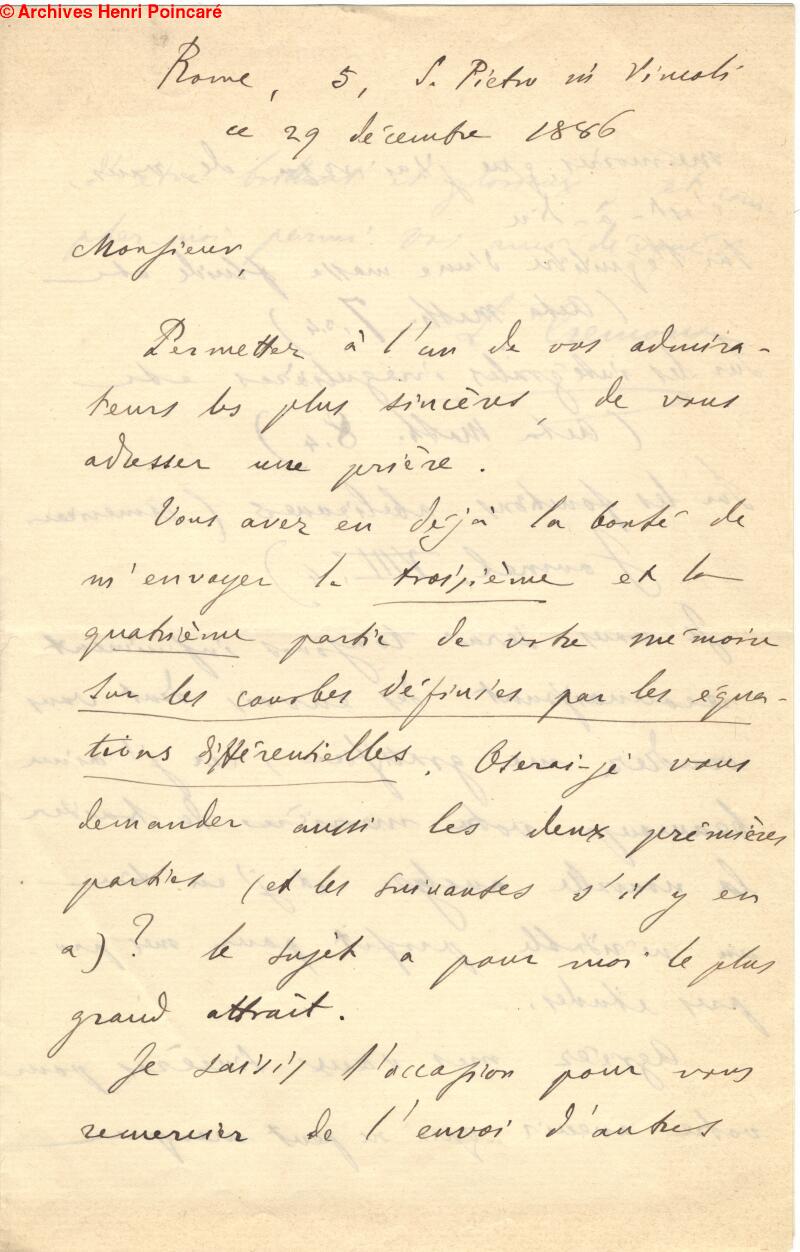 © Archives Henri Poincaré
Rome, 5, S. Pietro in Vincoli
ce 29 décembre 1886
Monsieur,
Permettez à l'un de vos admira-
teurs les plus sincères, de vous
adresser une prière.
Vous avez eu déjà la bonté de
m'envoyer la troisième et la
quatrième partie de votre mémoire
sur les courbes définies par les équa-
tions différentielles. Oserai-je vous
demander aussi les deux prémières
parties (et les suivantes s'il y en
a)? le sujet a pour moi le plus
grand attrait.
Je saisis l'occasion pour vous
remercier de l'envoi d'autres